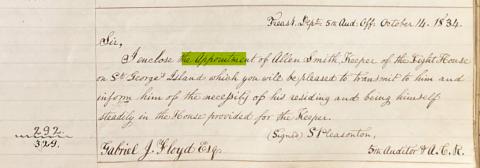 Treasy. Dept. 5th Aud. Off. October 14. 1834.
Sir,
I enclose the appointment of Allen Smith, Keeper of the Light House
on St. George's Island which you will be pleased to transmit to him and
inform him of the necessity of his residing and being himself
steadily in the House provided for the Keeper.
292.
329.
(Signed) S. Pleasonton,
Gabriel J. Floyd Esqr.
5th Auditor & A.C.R.